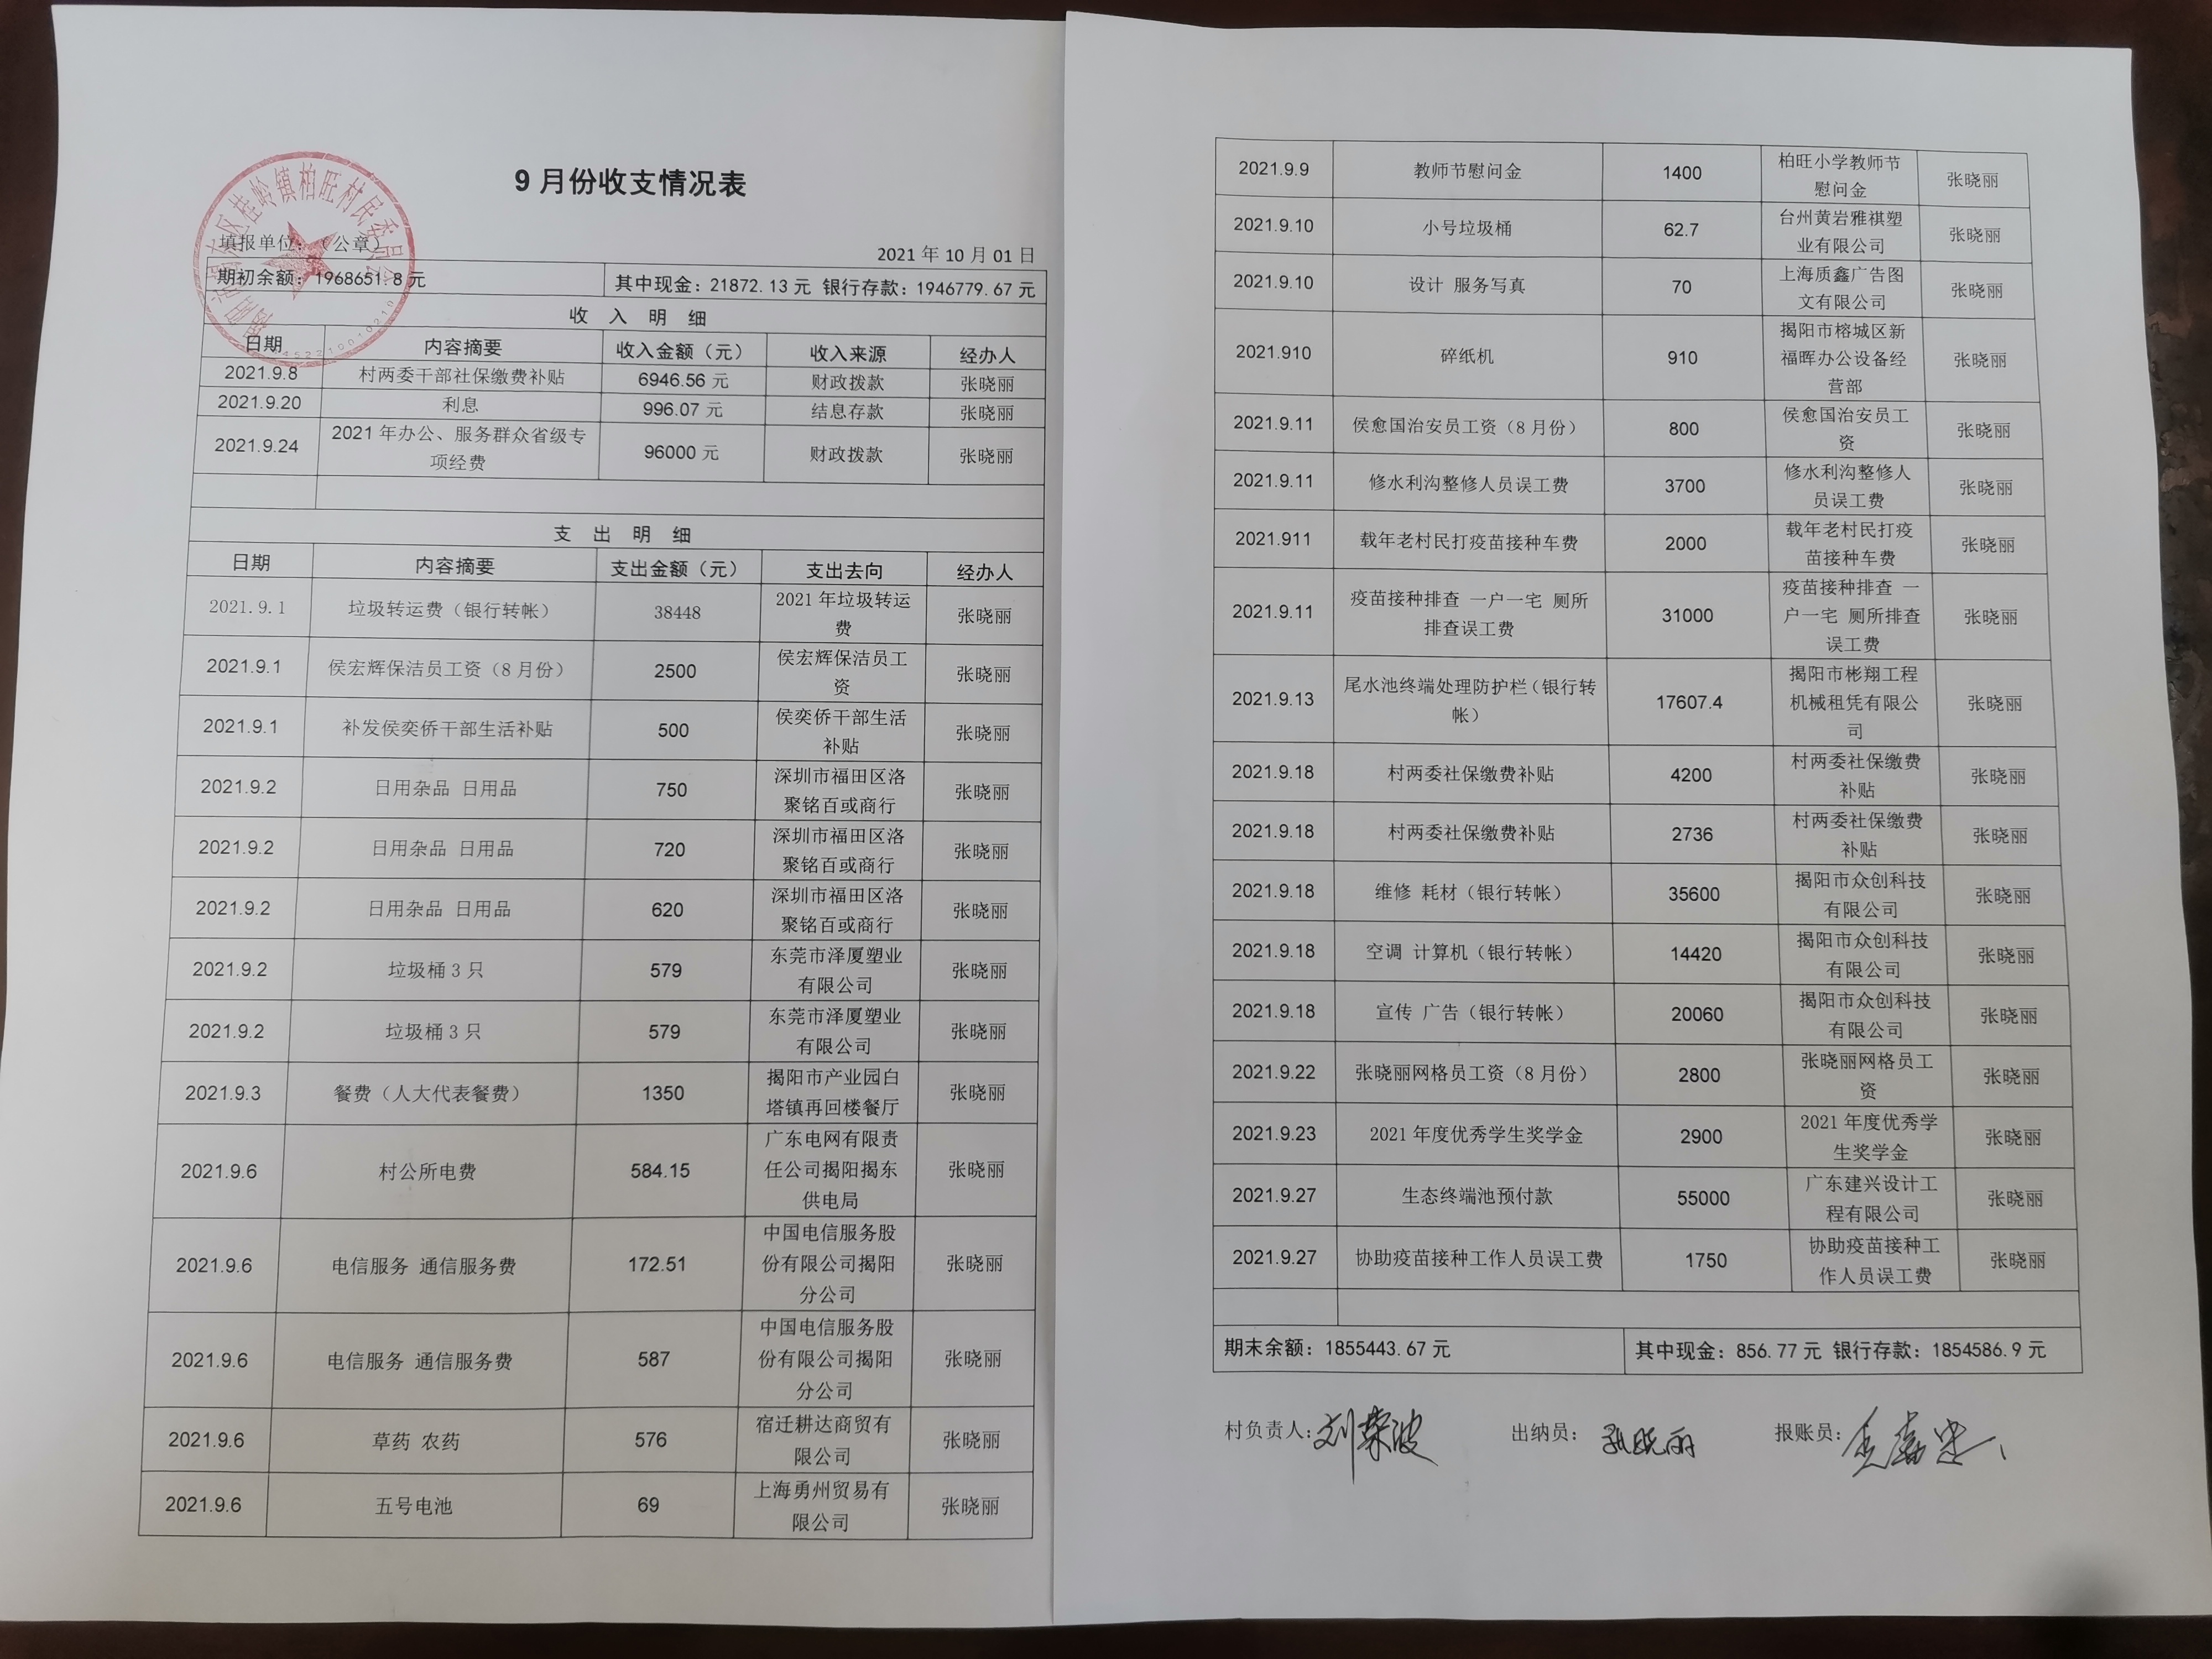 9 月份收支情况表
区桂岭镇柏旺村民委员会
填报单位：（公章）
2021 年 10 月 01 日
期初余额：1968651.8 元 其中现金：21872.13 元 银行存款：1946779.67 元
收 入 明 细
日期 内容摘要 收入金额（元） 收入来源 经办人
2021.9.8 村两委干部社保缴费补贴 6946.56 元 财政拨款 张晓丽
2021.9.20 利息 996.07 元 结息存款 张晓丽
2021.9.24 2021 年办公、服务群众省级专项经费 96000 元 财政拨款 张晓丽
支 出 明 细
日期 内容摘要 支出金额（元） 支出去向 经办人
2021.9.1 垃圾转运费（银行转帐） 38448 2021 年垃圾转运费 张晓丽
2021.9.1 侯宏辉保洁员工资（8 月份） 2500 侯宏辉保洁员工资 张晓丽
2021.9.1 补发侯奕侨干部生活补贴 500 侯奕侨干部生活补贴 张晓丽
2021.9.2 日用杂品 日用品 750 深圳市福田区洛聚铭百或商行 张晓丽
2021.9.2 日用杂品 日用品 720 深圳市福田区洛聚铭百或商行 张晓丽
2021.9.2 日用杂品 日用品 620 深圳市福田区洛聚铭百或商行 张晓丽
2021.9.2 垃圾桶 3 只 579 东莞市泽厦塑业有限公司 张晓丽
2021.9.2 垃圾桶 3 只 579 东莞市泽厦塑业有限公司 张晓丽
2021.9.3 餐费（人大代表餐费） 1350 揭阳市产业园白塔镇再回楼餐厅 张晓丽
2021.9.6 村公所电费 584.15 广东电网有限责任公司揭阳揭东供电局 张晓丽
2021.9.6 电信服务 通信服务费 172.51 中国电信服务股份有限公司揭阳分公司 张晓丽
2021.9.6 电信服务 通信服务费 587 中国电信服务股份有限公司揭阳分公司 张晓丽
2021.9.6 草药 农药 576 宿迁耕达商贸有限公司 张晓丽
2021.9.6 五号电池 69 上海勇州贸易有限公司 张晓丽
2021.9.9 教师节慰问金 1400 柏旺小学教师节慰问金 张晓丽
2021.9.10 小号垃圾桶 62.7 台州黄岩雅祺塑业有限公司 张晓丽
2021.9.10 设计 服务写真 70 上海质鑫广告图文有限公司 张晓丽
2021.910 碎纸机 910 揭阳市榕城区新福晖办公设备经营部 张晓丽
2021.9.11 侯愈国治安员工资（8 月份） 800 侯愈国治安员工资 张晓丽
2021.9.11 修水利沟整修人员误工费 3700 修水利沟整修人员误工费 张晓丽
2021.911 载年老村民打疫苗接种车费 2000 载年老村民打疫苗接种车费 张晓丽
2021.9.11 疫苗接种排查 一户一宅 厕所排查误工费 31000 疫苗接种排查 一户一宅 厕所排查误工费 张晓丽
2021.9.13 尾水池终端处理防护栏（银行转帐） 17607.4 揭阳市彬翔工程机械租赁有限公司 张晓丽
2021.9.18 村两委社保缴费补贴 4200 村两委社保缴费补贴 张晓丽
2021.9.18 村两委社保缴费补贴 2736 村两委社保缴费补贴 张晓丽
2021.9.18 维修 耗材（银行转帐） 35600 揭阳市众创科技有限公司 张晓丽
2021.9.18 空调 计算机（银行转帐） 14420 揭阳市众创科技有限公司 张晓丽
2021.9.18 宣传 广告（银行转帐） 20060 揭阳市众创科技有限公司 张晓丽
2021.9.22 张晓丽网格员工资（8 月份） 2800 张晓丽网格员工资 张晓丽
2021.9.23 2021 年度优秀学生奖学金 2900 2021 年度优秀学生奖学金 张晓丽
2021.9.27 生态终端池预付款 55000 广东建兴设计工程有限公司 张晓丽
2021.9.27 协助疫苗接种工作人员误工费 1750 协助疫苗接种工作人员误工费 张晓丽
期末余额：1855443.67 元 其中现金：856.77 元 银行存款：1854586.9 元
村负责人：刘荣波 出纳员：张晓丽 报账员：